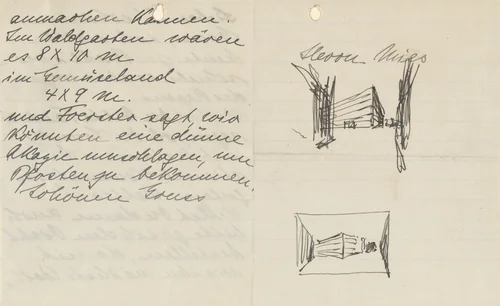 anmachen können.
Im Waldgarten wären
es 8 X 10 m
im Gemüseland
4 X 9 m.
und Foerster sagt, wir
könnten eine dünne
Akazie umschlagen, um
Pfosten zu bekommen.
Schönen Gruss
Herrn Migo